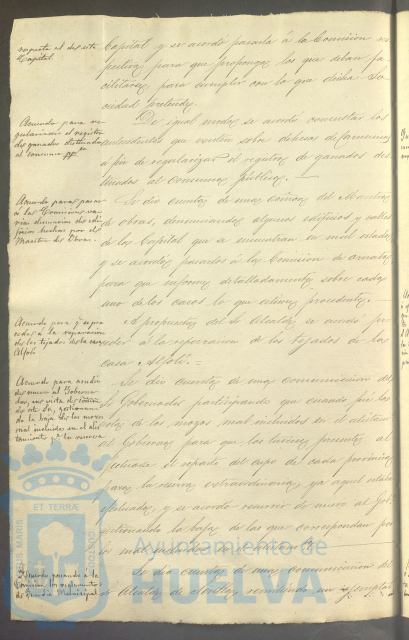 respecto al de esta
Capital.
Capital y se acordó pasarla á la Comision res
pectiva para que proponga los que deban fa
cilitarse para cumplir con lo que dicha So
ciedad pretende.
Acuerdo para re
gularizar el registro
de ganados destinados
al consumo
De igual modo se acordó consultar los
antecedentes que existen sobre dehesa de
á fin de regularizar el registro de ganados des
tinados al consumo público.
Acuerdo para pasar
á la Comision
varias denuncias de edi
ficios hechas por el
Maestro de Obras.
Se dió cuenta de unos oficios del Maestro
de obras, denunciando algunos edificios y solares
de la Capital que se encuentran en mal estado
y se acordó pasarlos á la Comision de ornato
para que informe detalladamente sobre cada
uno de los casos lo que estime procedente.
Acuerdo para q se pro
ceda á la reparacion
de los tejados de la casa
Alfolí
A propuesta del Sr Alcalde se acordó pro
ceder á la reparacion de los tejados de la
casa Alfolí.
Acuerdo para acudir
de nuevo al Goberna
dor, en vista de
de este Sr, gestionan
do la baja de los mozos
mal incluidos en el alis
tamiento pa la reserva
Se dió cuenta de una comunicacion del
Sr Gobernador participando que cuando
los de los mozos mal incluidos en el alistam
al Gobierno para que los tuviera presentes al
efectuarse el reparto del cupo de cada provincia
para la reserva extraordinaria, ya aquel estaba
efectuado, y se acordó recurrir de nuevo al Gob
gestionando la baja de los que correspondan por
los mal incluidos
Acuerdo pasando á la
Comision los reglamentos
de Guardia Municipal
Se dió cuenta de una comunicacion del
Sr Alcalde de Sevilla remitiendo un ejemplar
ET TERRÆ
MARIS
CUSTODI
Ayuntamiento de
HUELVA